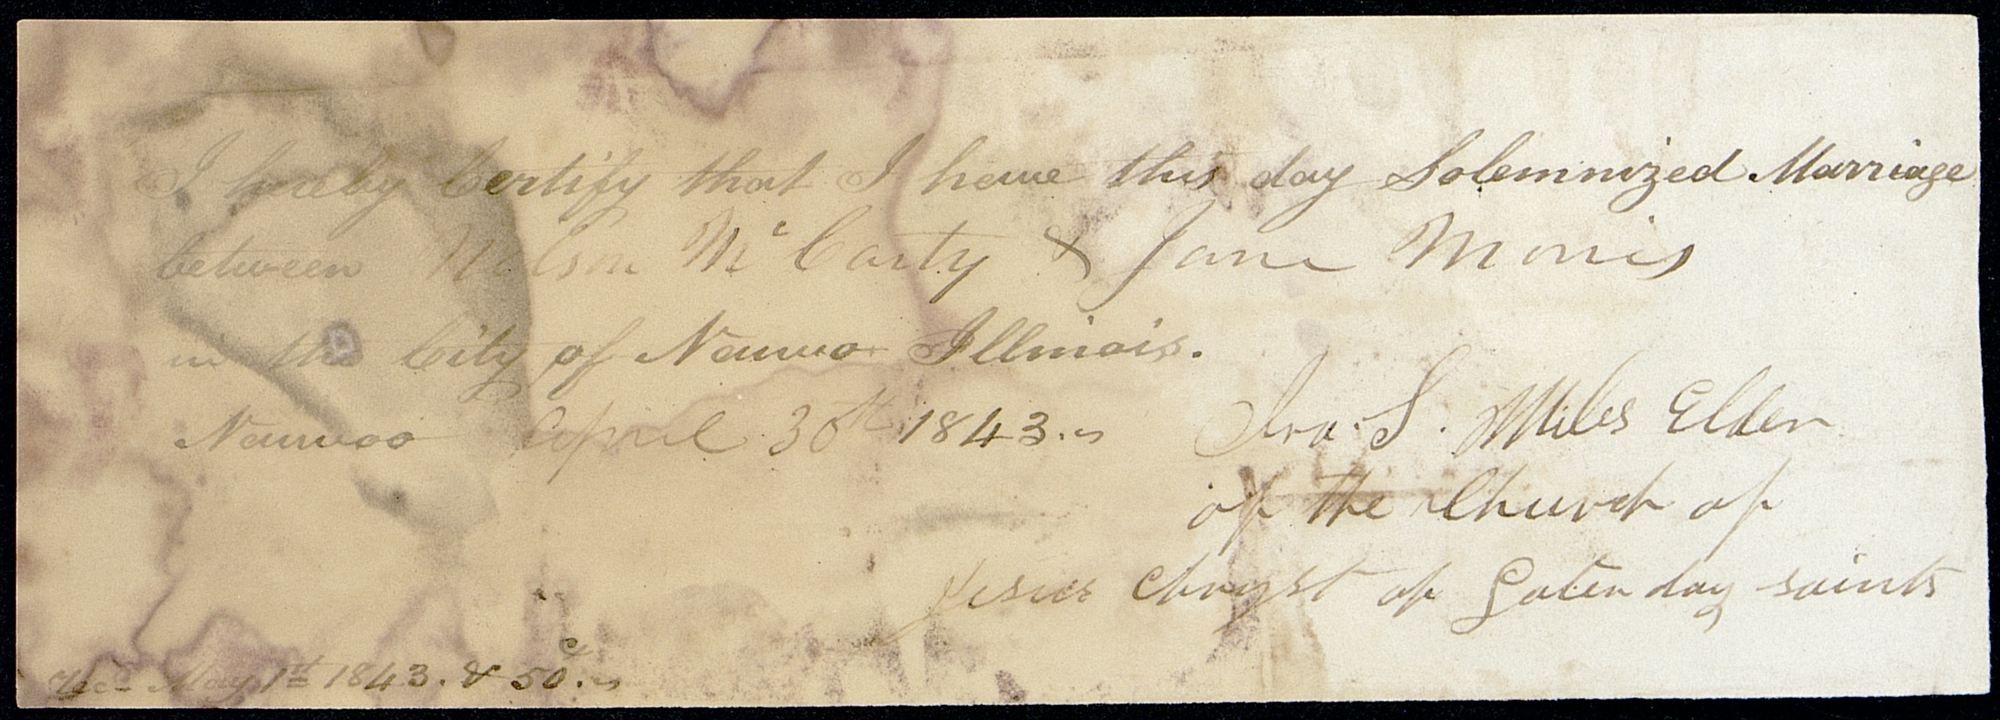 I hereby Certify that I have this day Solemnized Marriage
between Nelson Mc Carty & Jane Morris
in the City of Nauvoo Illinois.
Nauvoo April 30th 1843.
Ira. S. Miles Elder
of the Church of
jesus chryst of Laterday saints
Recd May 1st 1843. & 50c.